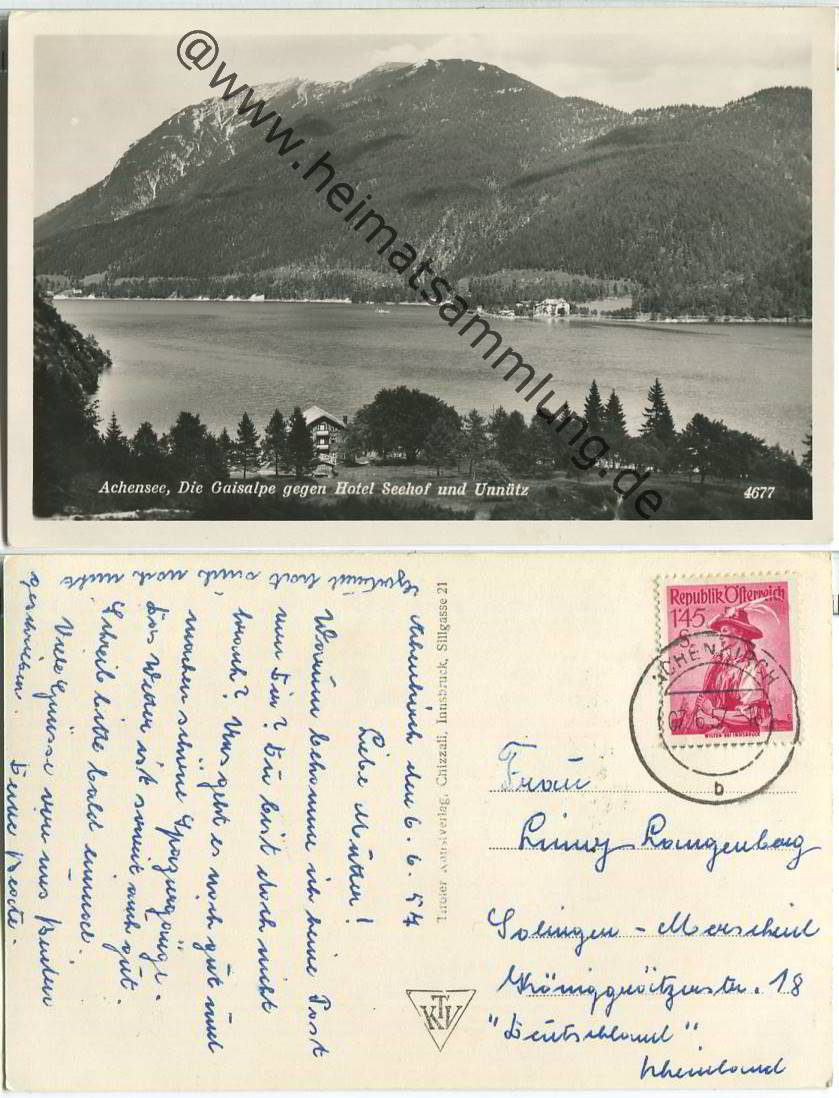 @www.heimatsammlung.de
Achensee, Die Gaisalpe gegen Hotel Seehof und Unnütz
4677
Achenkirch den 6. 6. 54
Liebe Mutter!
Warum bekomme ich keine Post
von Dir? Du bist doch nicht
krank? Uns geht es noch gut und
machen schöne Spaziergänge.
Das Wetter ist soweit auch gut.
Schreib bitte bald einmal.
Viele Grüsse von uns Beiden
Deine
hat auch noch nicht
geschrieben.
Tiroler Kunstverlag, Chizzali, Innsbruck, Sillgasse 21
TKV
Republik Österreich
1'45
S
WILTEN BEI INNSBRUCK
ACHENKIRCH
b
Frau
Langenberg
Solingen - Merscheid
Königgrätzerstr. 18
"Deutschland"
Rheinland